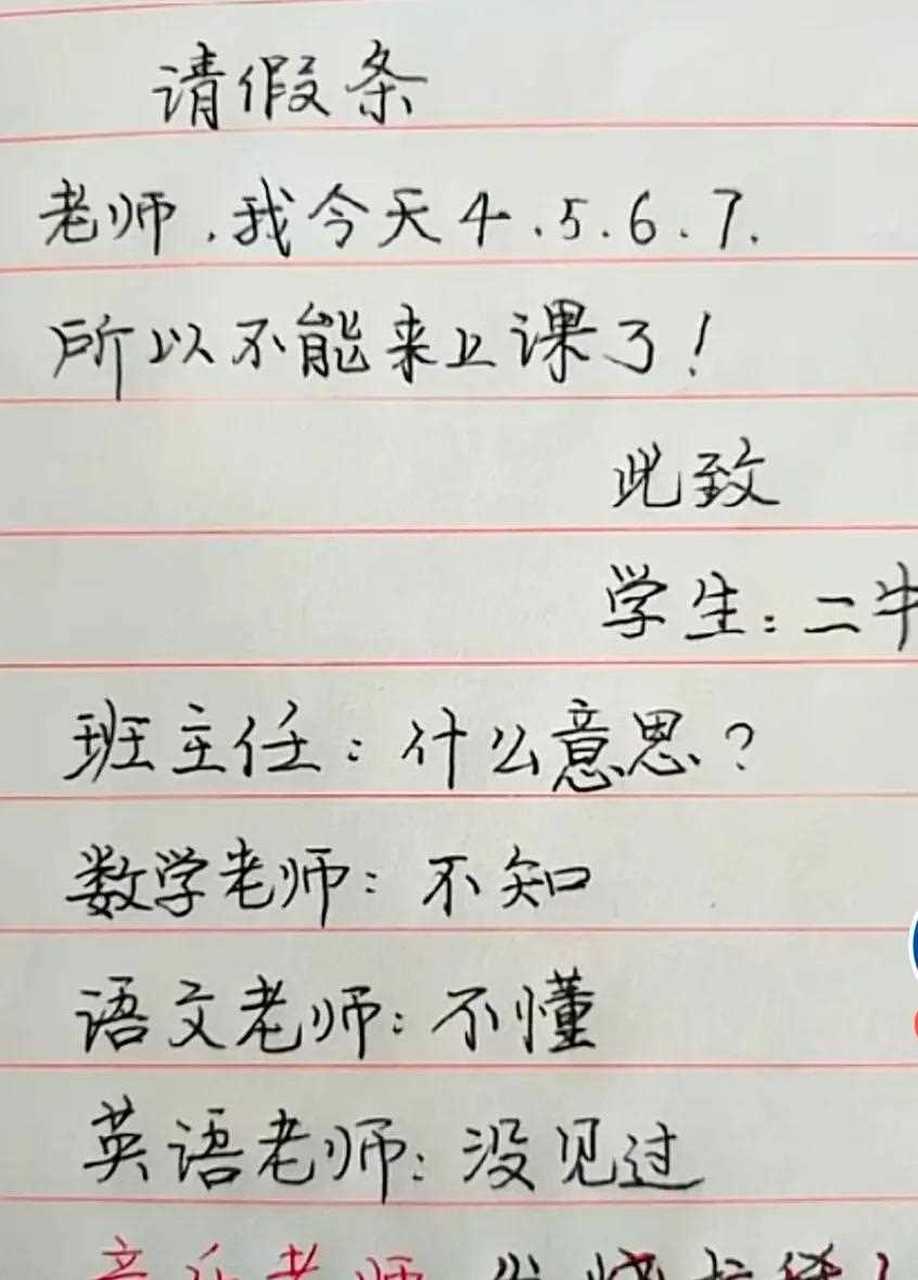 请假条
老师,我今天4.5.6.7.
所以不能来上课了!
此致
学生:二牛
班主任:什么意思?
数学老师:不知
语文老师:不懂
英语老师:没见过
音乐老师